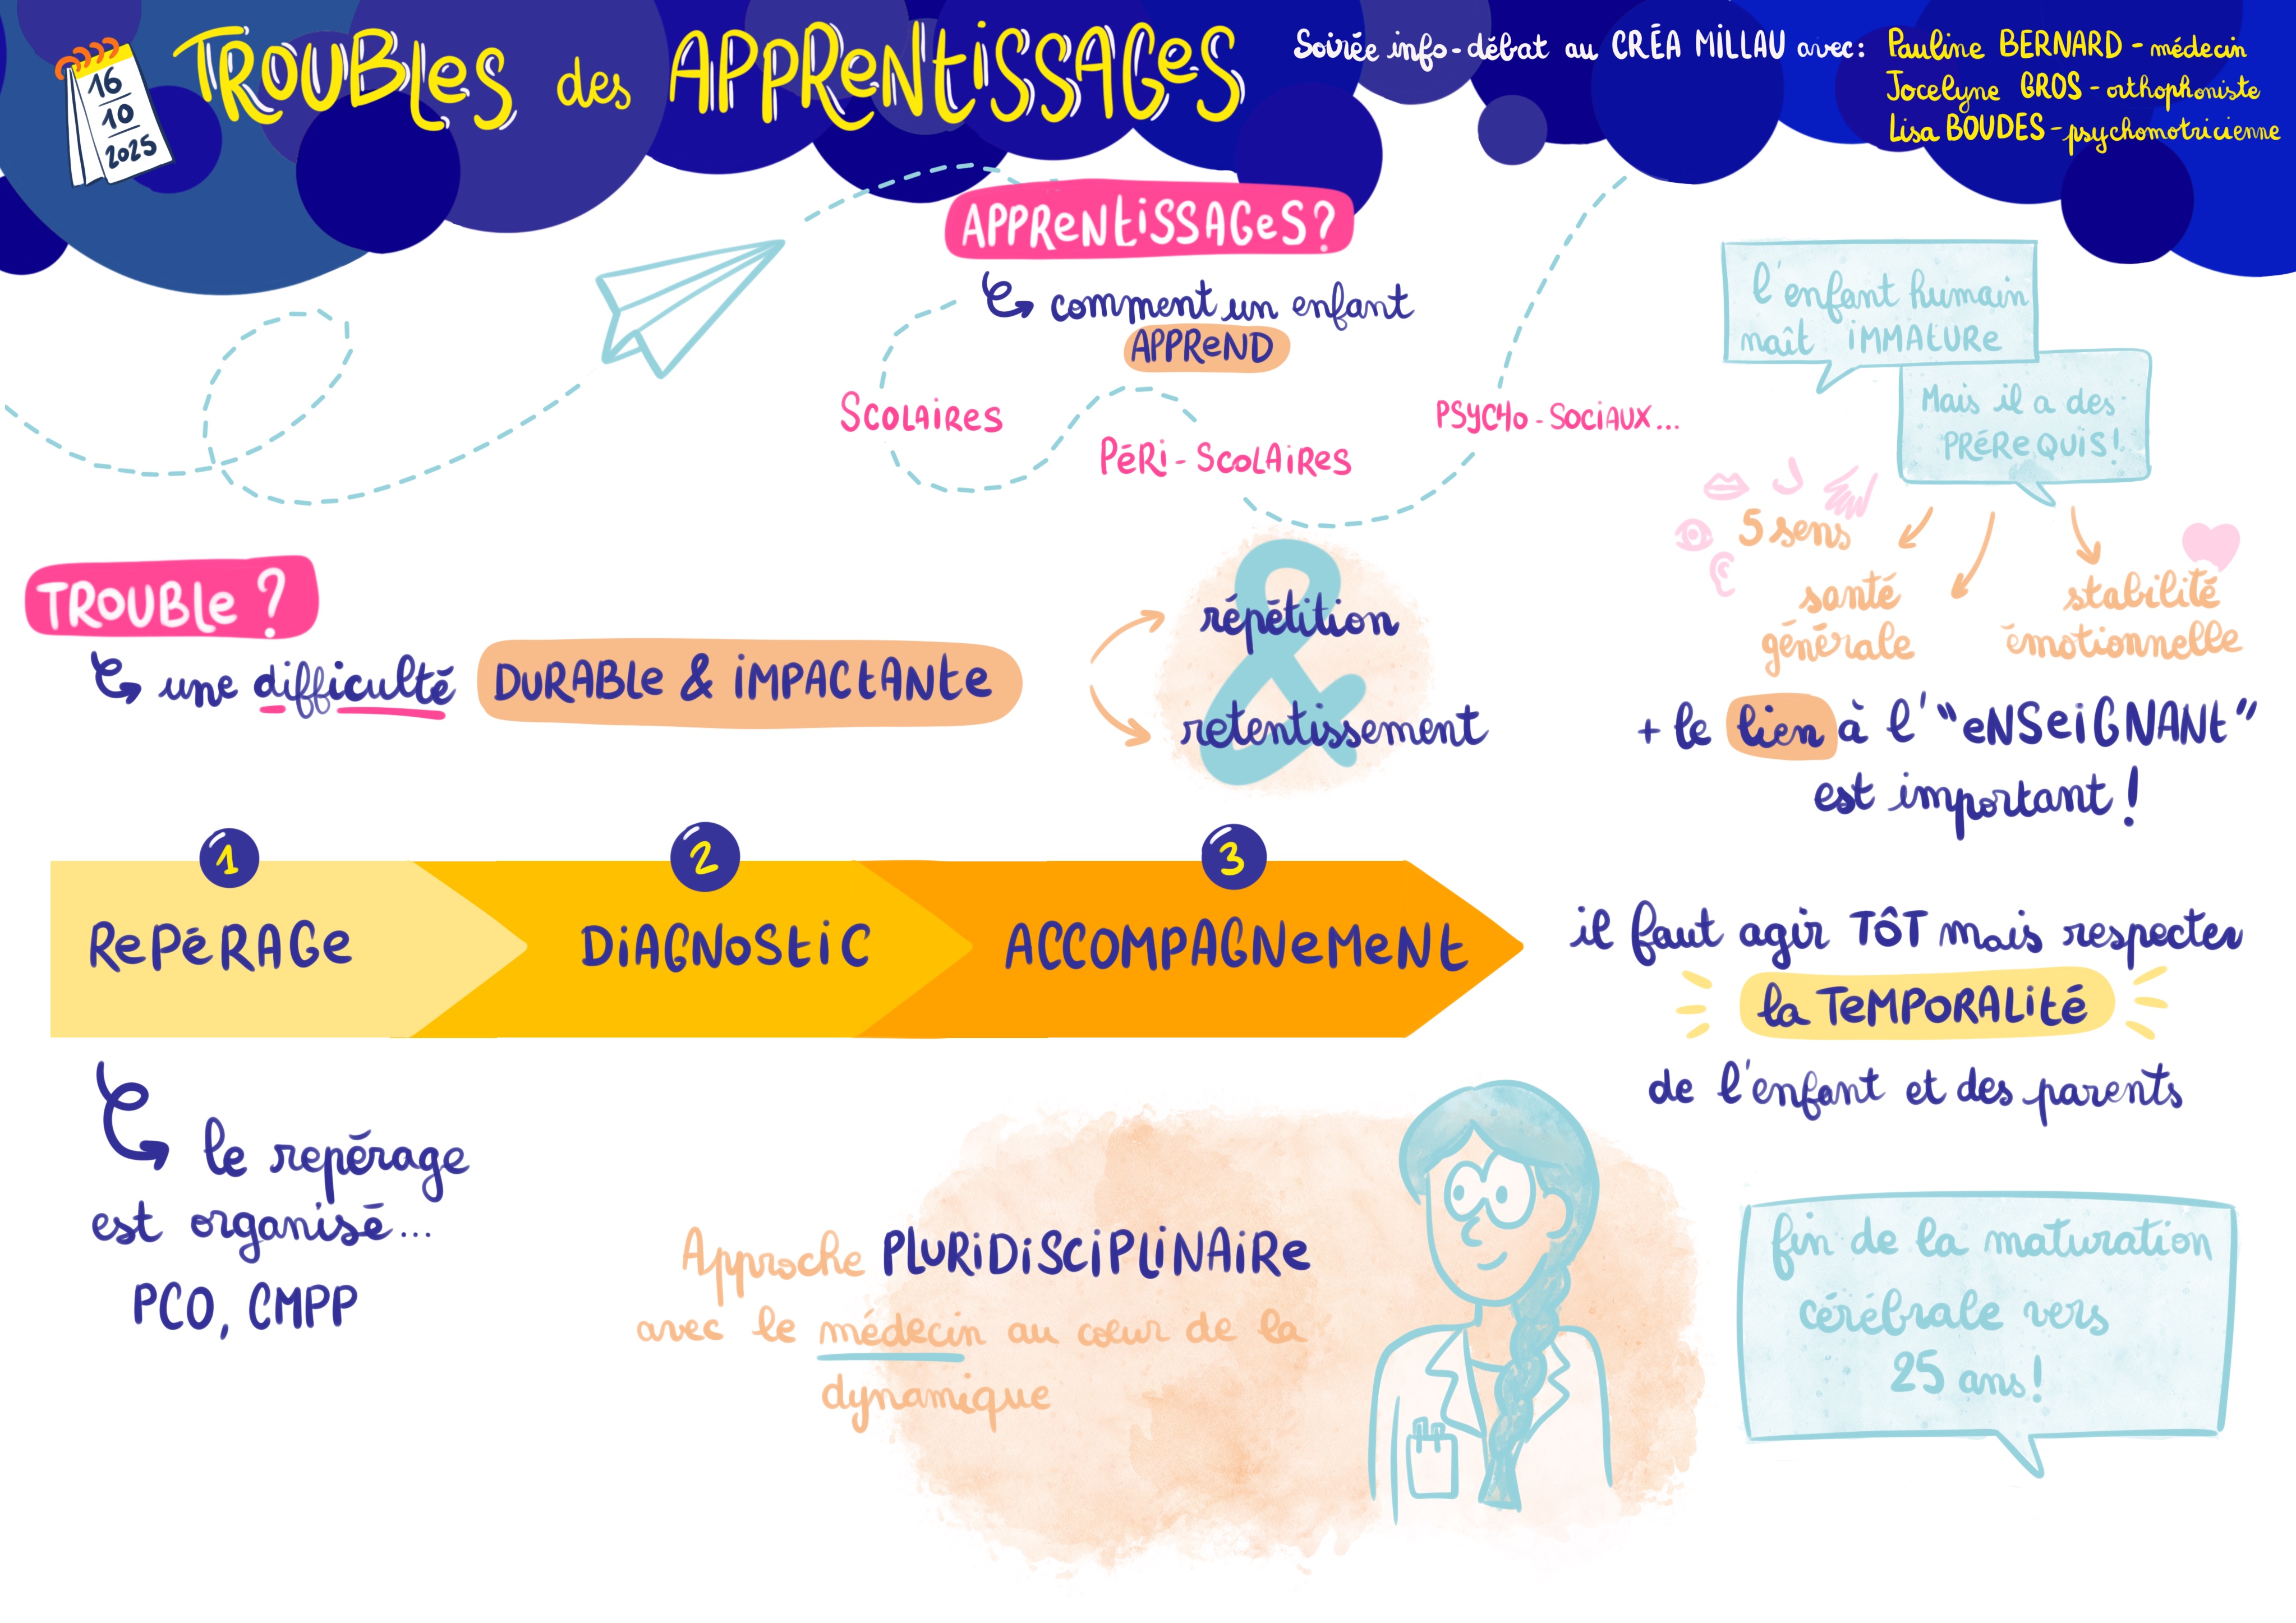 16
10
2025
TROUBLES des APPRENTISSAGES
Soirée info-débat au CRÉA MILLAU avec :
Pauline BERNARD - médecin
Jocelyne GROS - orthophoniste
Lisa BOUDES - psychomotricienne
APPRENTISSAGES ?
comment un enfant
APPREND
SCOLAIRES
PÉRI-SCOLAIRES
PSYCHO-SOCIAUX...
l'enfant humain
naît IMMATURE
Mais il a des
PRÉREQUIS !
5 sens
santé
générale
stabilité
émotionnelle
+ le lien à l'"ENSEIGNANT"
est important !
TROUBLE ?
une difficulté DURABLE & IMPACTANTE
répétition
&
retentissement
1
2
3
REPÉRAGE
DIAGNOSTIC
ACCOMPAGNEMENT
il faut agir TÔT mais respecter
la TEMPORALITÉ
de l'enfant et des parents
le repérage
est organisé...
PCO, CMPP
Approche PLURIDISCIPLINAIRE
avec le médecin au cœur de la
dynamique
fin de la maturation
cérébrale vers
25 ans !